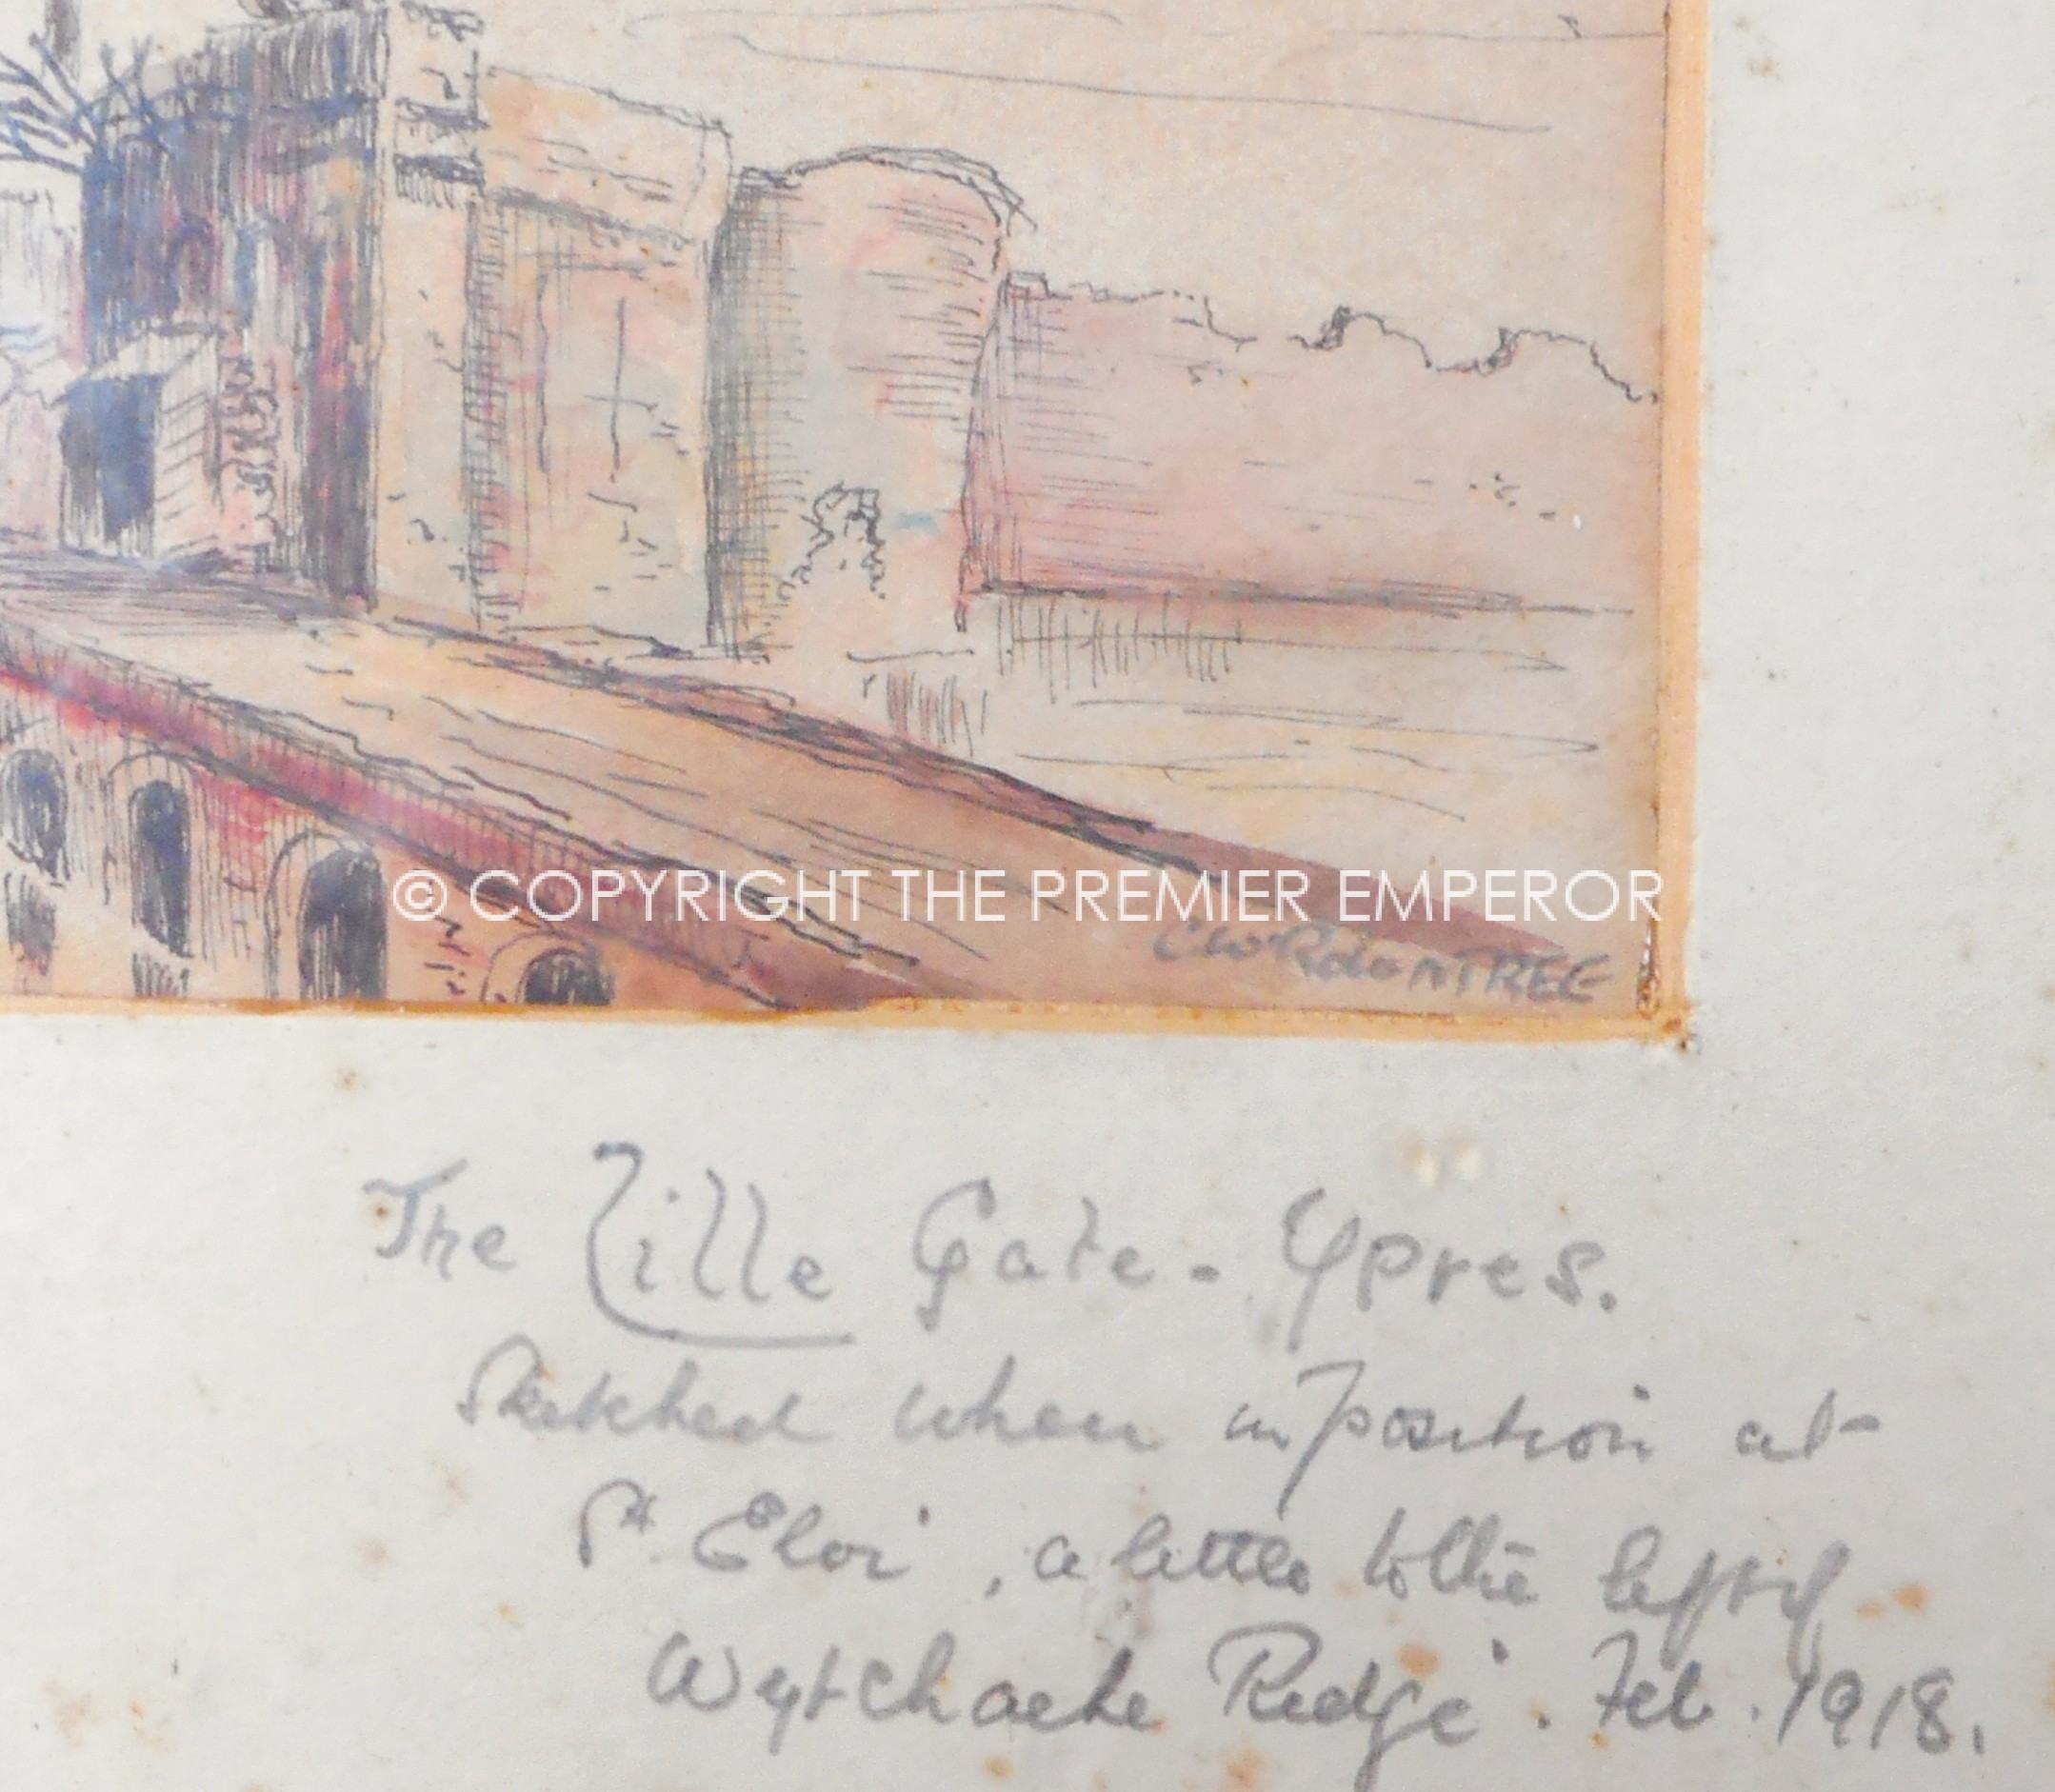 © COPYRIGHT THE PREMIER EMPEROR
The Lille Gate - Ypres.
Sketched when in position at
St. Eloi, a little to the left of
Wytchaete Ridge. Feb. 1918.